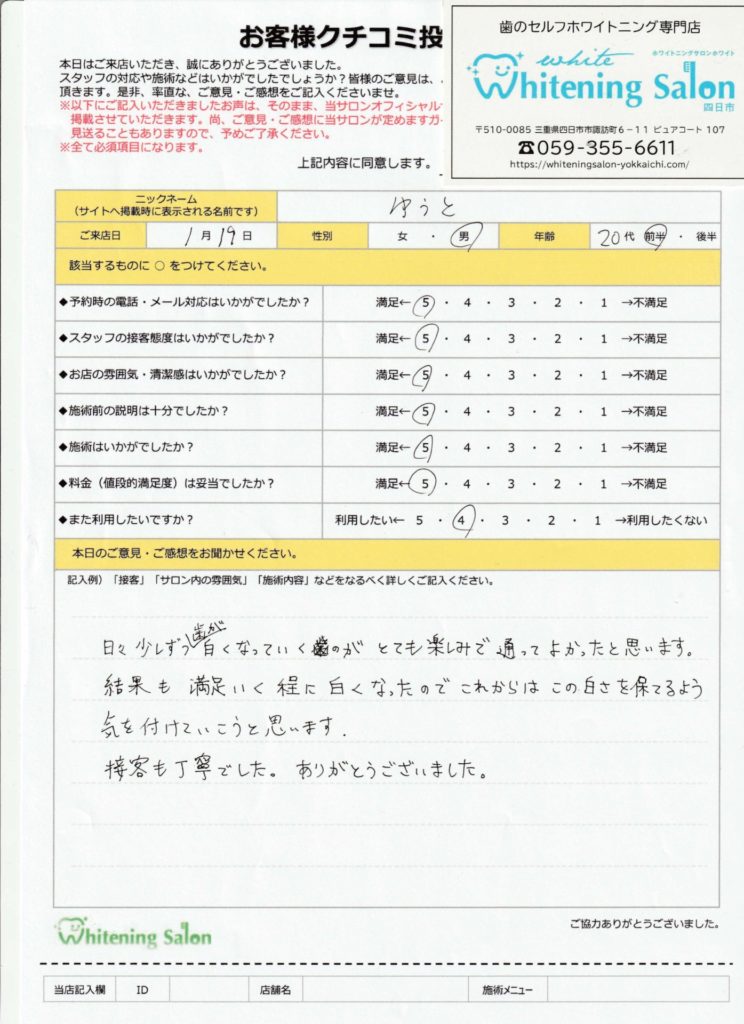 お客様クチコミ投
本日はご来店いただき、誠にありがとうございました。
スタッフの対応や施術などはいかがでしたでしょうか?皆様のご意見は、
頂きます。是非、率直な、ご意見・ご感想をご記入くださいませ。
※以下にご記入いただきましたお声は、そのまま、当サロンオフィシャル
掲載させていただきます。尚、ご意見・ご感想に当サロンが定めますガ
見送ることもありますので、予めご了承ください。
※全て必須項目になります。
上記内容に同意します。
歯のセルフホワイトニング専門店
white
ホワイトニングサロンホワイト
Whitening Salon
四日市
〒510-0085 三重県四日市市諏訪町6-11 ピュアコート 107
☎059-355-6611
https://whiteningsalon-yokkaichi.com/
ニックネーム
(サイトへ掲載時に表示される名前です)
ゆうと
ご来店日 1月19日 性別 女・男 年齢 20代 前半・後半
該当するものに○をつけてください。
◆予約時の電話・メール対応はいかがでしたか? 満足←5・4・3・2・1→不満足
◆スタッフの接客態度はいかがでしたか? 満足←5・4・3・2・1→不満足
◆お店の雰囲気・清潔感はいかがでしたか? 満足←5・4・3・2・1→不満足
◆施術前の説明は十分でしたか? 満足←5・4・3・2・1→不満足
◆施術はいかがでしたか? 満足←5・4・3・2・1→不満足
◆料金(値段的満足度)は妥当でしたか? 満足←5・4・3・2・1→不満足
◆また利用したいですか? 利用したい←5・4・3・2・1→利用したくない
本日のご意見・ご感想をお聞かせください。
記入例)「接客」「サロン内の雰囲気」「施術内容」などをなるべく詳しくご記入ください。
日々少しずつ歯が白くなっていくのがとても楽しみで通ってよかったと思います。
結果も満足いく程に白くなったのでこれからはこの白さを保てるよう
気を付けていこうと思います.
接客も丁寧でした。ありがとうございました。
Whitening Salon
ご協力ありがとうございました。
当店記入欄 ID 店舗名 施術メニュー